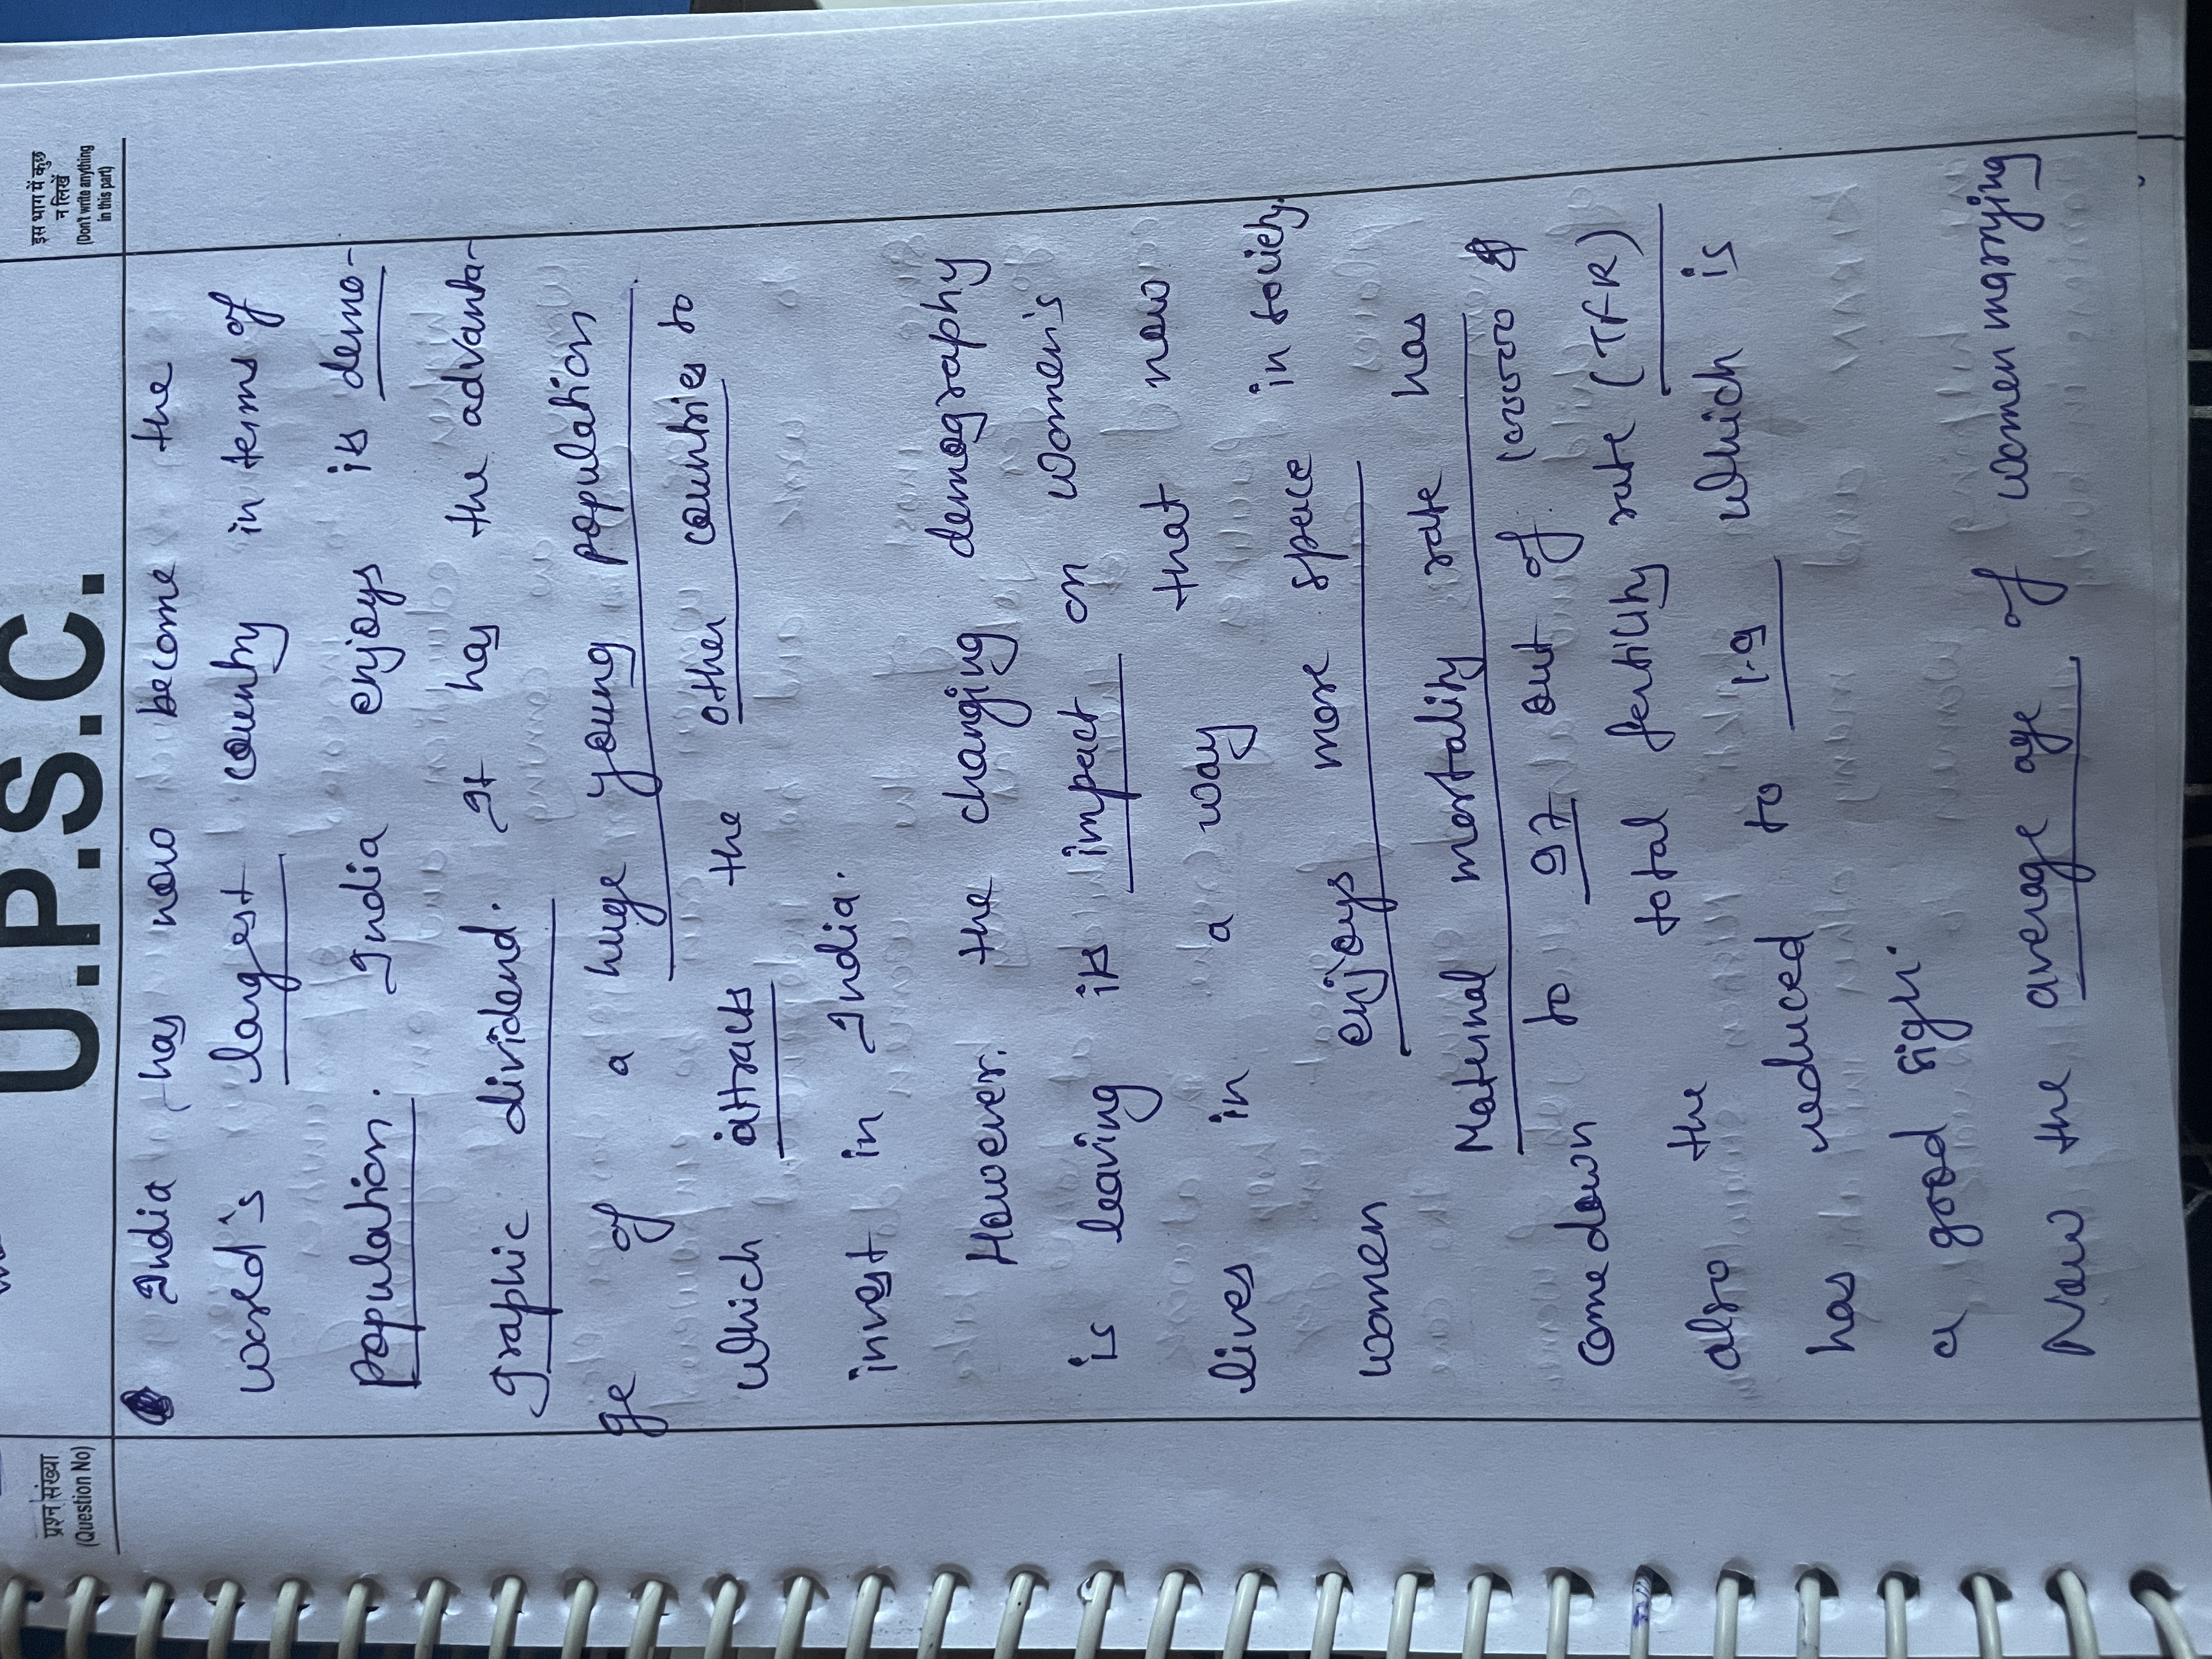 U.P.S.C.
प्रश्न संख्या
(Question No)
इस भाग में कुछ
न लिखें
(Don't write anything
in this part)
India has now become the
world's largest country in terms of
population. India enjoys its demo-
graphic dividend. It has the advanta-
ge of a huge young population
which attracts the other countries to
invest in India.
However. the changing demography
is leaving its impact on women's
lives in a way that now
women enjoys more space in society.
Maternal mortality rate has
come down to 97 out of
also the total fertility rate (TFR)
has reduced to 1.9 which is
a good sign.
Now the average age of women marrying